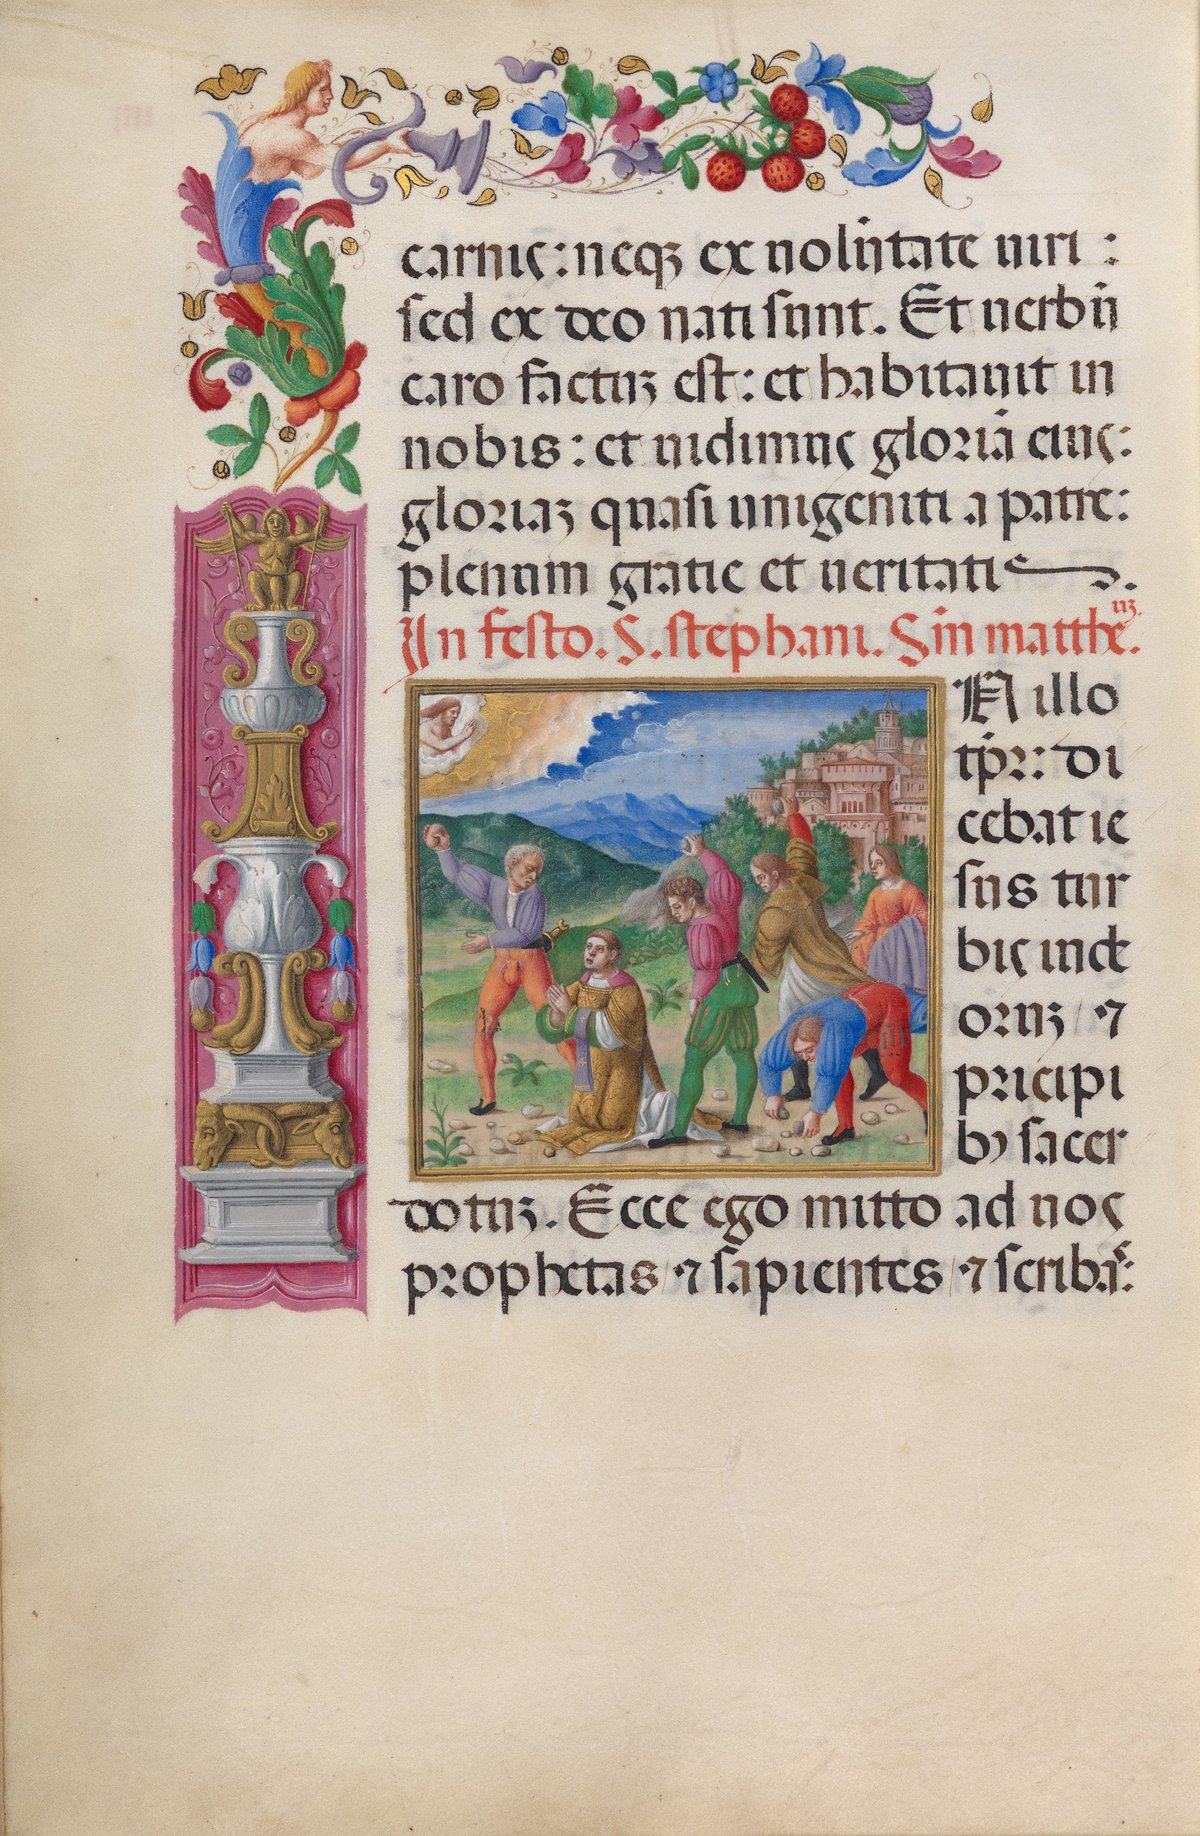 carnis: neqꝫ ex uolūtate uiri :
sed ex deo nati sunt. Et uerbū
caro factuꝫ est: et habitauit in
nobis: et uidimus gloriā eius:
gloriaꝫ quasi unigeniti a patre:
plenum gratie et ueritatis.
In festo. S. stephani. Sm̄ mattheuꝫ.
IN illo
tp̄r: di
cebat ie
sus tur
bis iude
oruꝫ / ⁊
pricipi
bꝰ sacer
dotuꝫ. Ecce ego mitto ad uos
prophetas / ⁊ sapientes / ⁊ scribas: